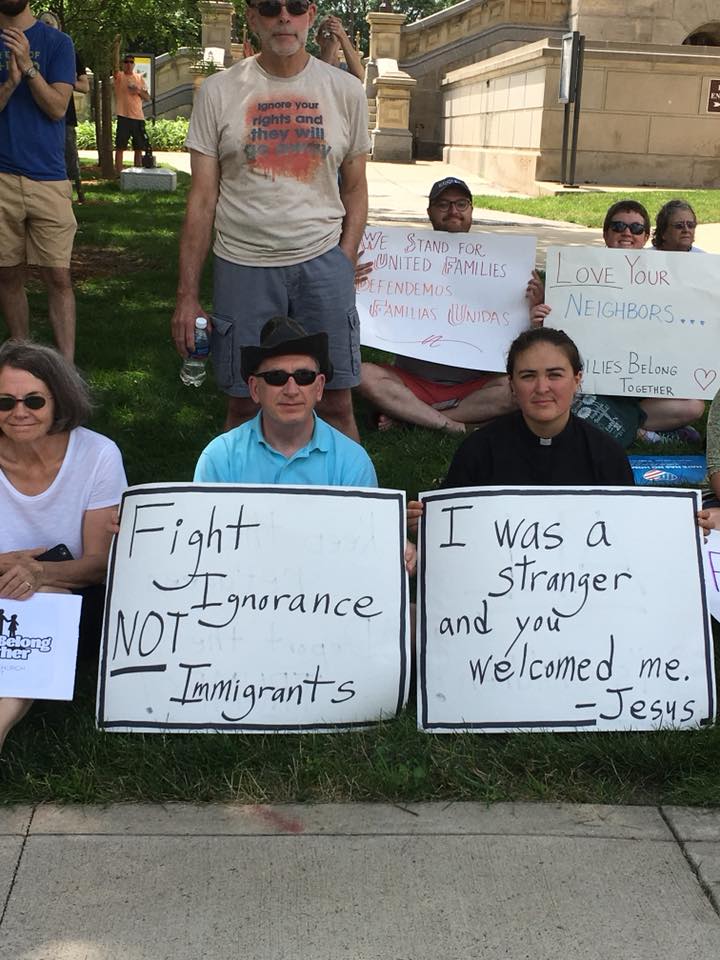 Ignore your
rights and
they will
go away
WE STAND FOR
UNITED FAMILIES
DEFENDEMOS
FAMILIAS UNIDAS
LOVE YOUR
NEIGHBORS...
BELONG
TOGETHER
Fight
Ignorance
NOT
Immigrants
I was a
stranger
and you
welcomed me.
- Jesus
Belong